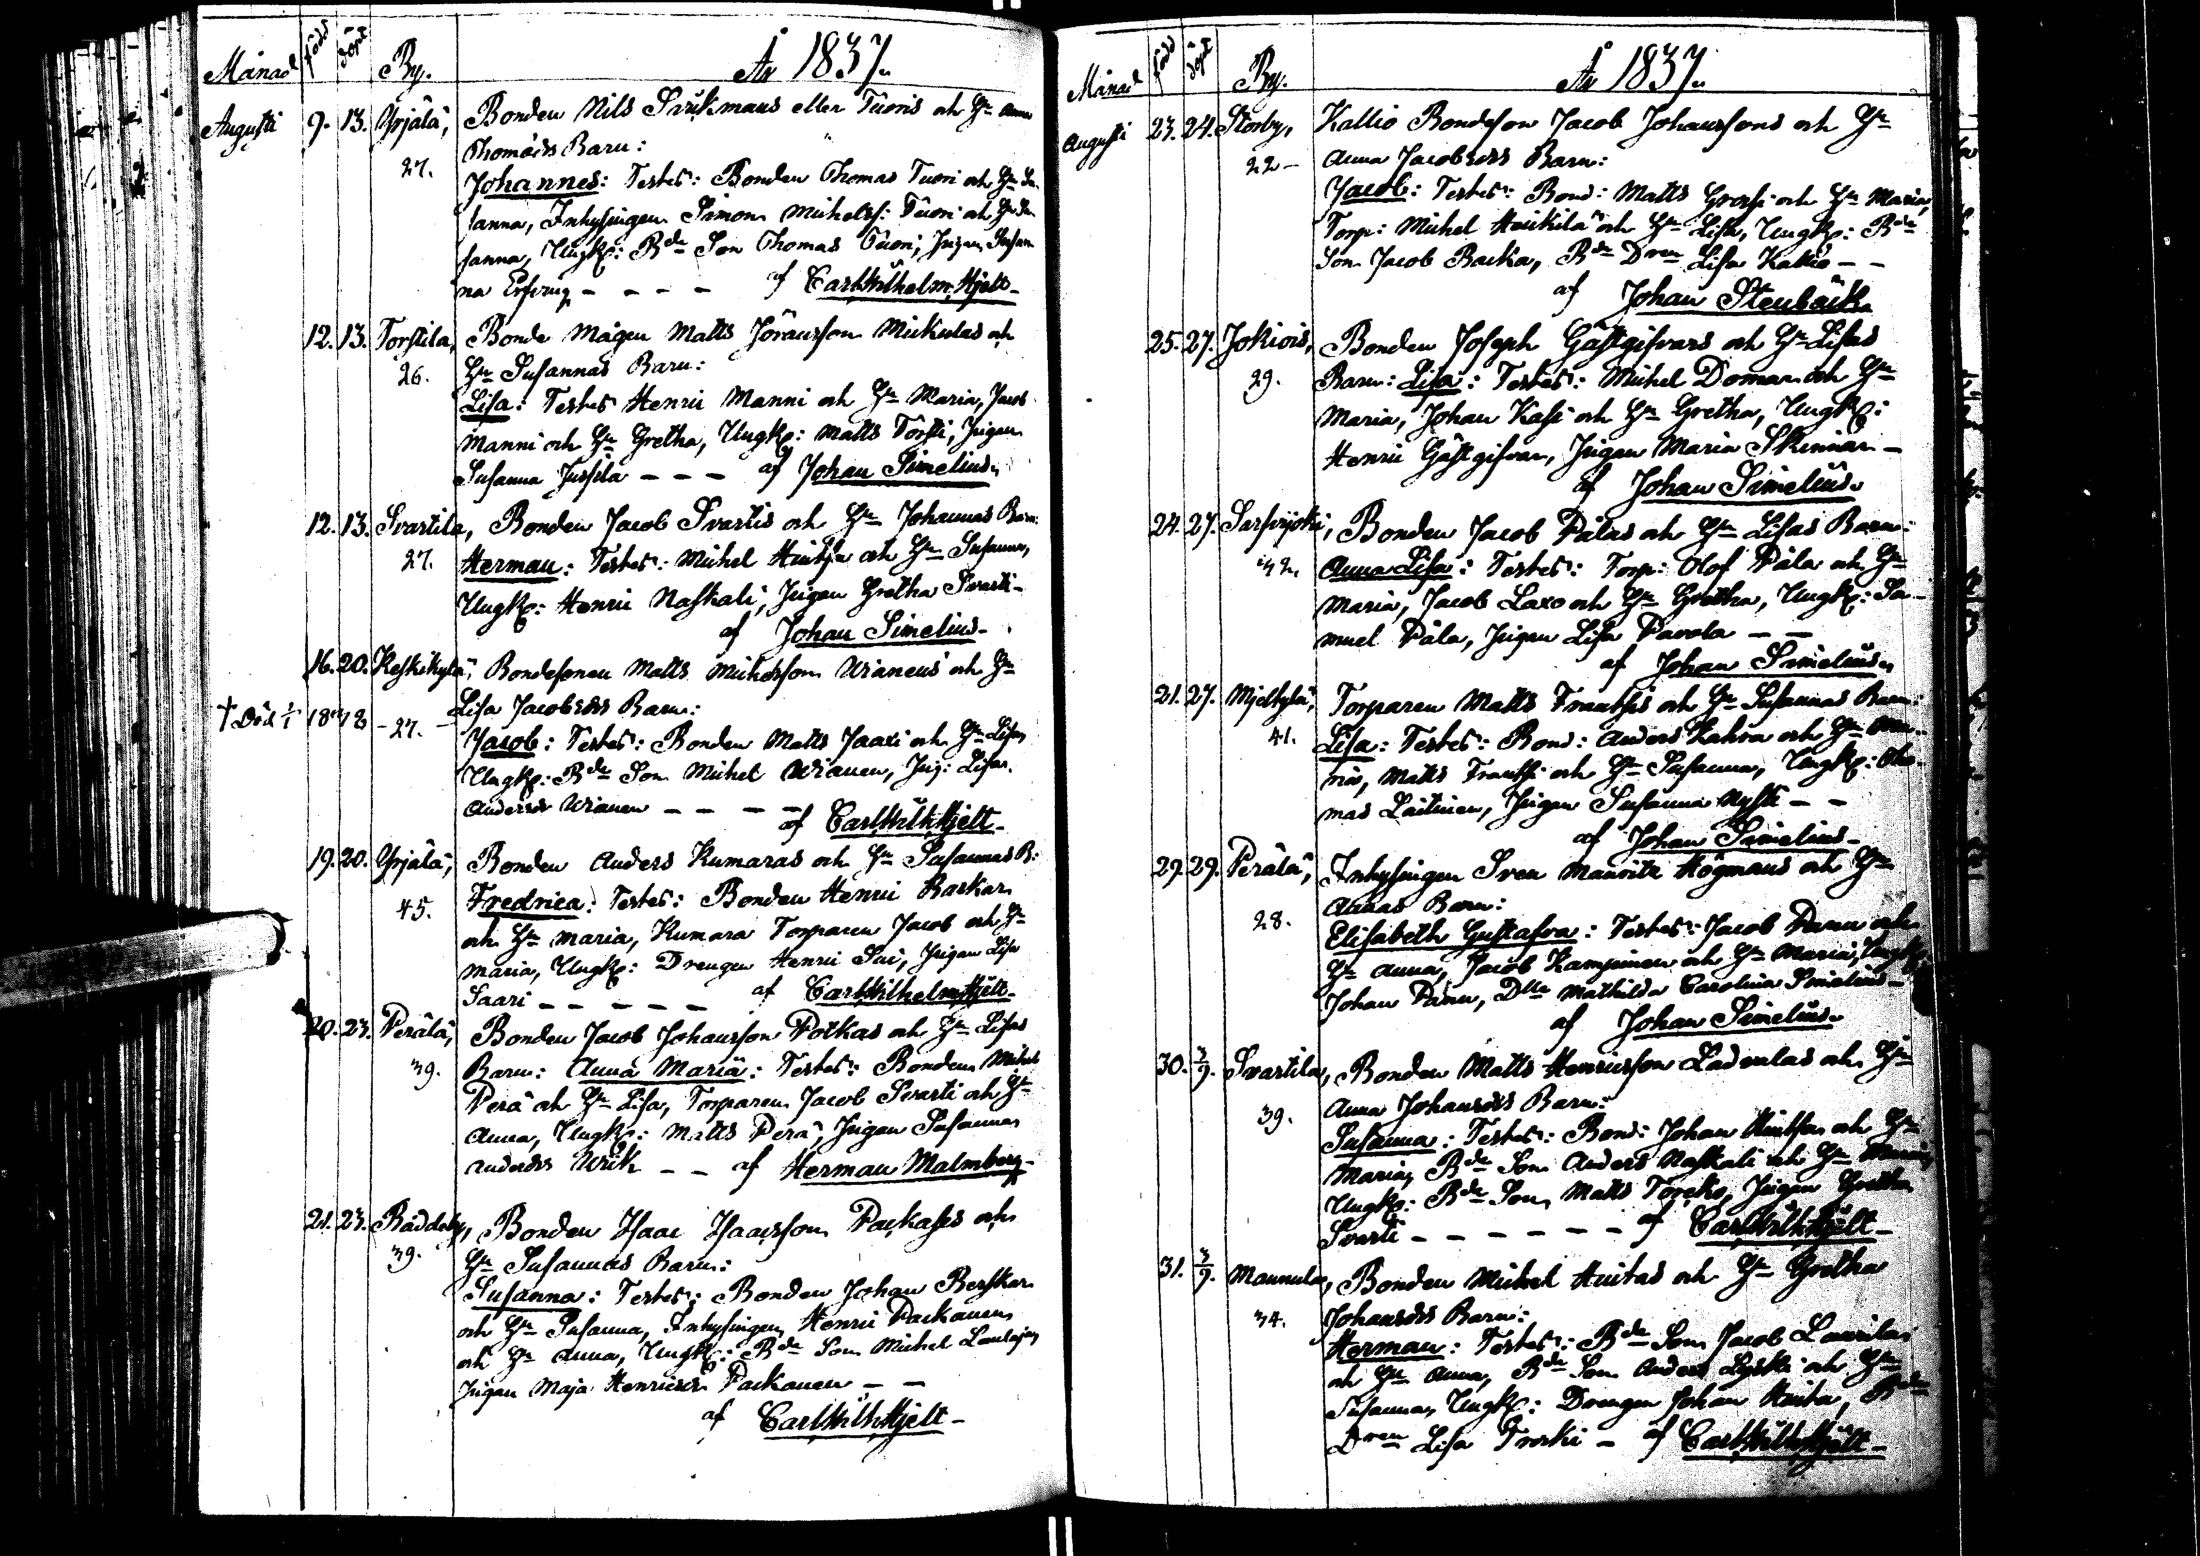 Månad född döpt By. År 1837.
Augusti 9. 13. Yrjälä, Bonden Nils Sarikmans eller Tuoris och Hu Anna
Thomædrs Barn:
27. Johannes: Testes: Bonden Thomas Tuori och Hu Su-
sanna, Inhysingen Simon Michelss: Tuori och Hu Su-
sanna, UngK: Bde Son Thomas Tuori, Pigan Susan
na Erfving – – – – af Carl Wilhelm Hjelt –
12. 13. Torstila, Bonde Mågen Matts Jöransson Mickulas och
26. Hu Susannas Barn:
Lisa: Testes Henric Manni och Hu Maria, Jacob
Manni och Hu Gretha, UngK: Matts Torsti, Pigan
Susanna Jussila – – – af Johan Simelius.
12. 13. Svartila, Bonden Jacob Svartis och Hu Johannas Barn:
27. Herman: Testes: Michel Huitja och Hu Susanna,
UngK: Henric Naskali, Pigan Gretha Svarti –
af Johan Simelius –
16. 20. Keskikylä, Bondesonen Matts Michelsson Wianens och Hu
† Död 1/1 1848 – 27. – Lisa Jacobsdrs Barn:
Jacob: Testes: Bonden Matts Jaari och Hu Lisa,
UngK: Bde Son Michel Wianen, Pig: Lisa
Andersdr Wianen – – – – af Carl Wilh Hjelt –
19. 20. Yrjälä, Bonden Anders Kumaras och Hu Susannas B:
45. Fredrica: Testes: Bonden Henric Barkar
och Hu Maria, Kumara Torparen Jacob och Hu
Maria, UngK: Drengen Henric Sai, Pigan Lisa
Saari – – – – – af Carl Wilhelm Hjelt –
20. 23. Perälä, Bonden Jacob Johansson Potkas och Hu Lisas
39. Barn: Anna Maria: Testes: Bonden Michel
Perä och Hu Lisa, Torparen Jacob Svarti och Hu
Anna, UngK: Matts Perä, Pigan Susanna
Andersdr Wrik – – af Herman Malmberg –
21. 23. Räddeby, Bonden Isaac Isaacsson Packases och
39. Hu Susannas Barn:
Susanna: Testes: Bonden Johan Berskar
och Hu Susanna, Inhysingen Henric Packanen
och Hu Anna, UngK: Bde Son Michel Laulaja,
Pigan Maja Henricsdr Packanen – –
af Carl Wilh Hjelt –
Månad född döpt By. År 1837.
Augusti 23. 24. Storby, Kallio Bondeson Jacob Johanssons och Hu
22 – Anna Jacobsdrs Barn:
Jacob: Testes: Bond: Matts Grossi och Hu Maria,
Torp: Michel Heikilä och Hu Lisa, UngK: Bde
Son Jacob Backa, Bde Dren Lisa Kallio – –
af Johan Stenbäck
25. 27. Jokiois, Bonden Joseph Gästgifvars och Hu Lisas
29. Barn: Lisa: Testes: Michel Domar och Hu
Maria, Johan Kasi och Hu Gretha, UngK:
Henric Gästgifvar, Pigan Maria Skinnar –
af Johan Simelius.
24. 27. Sarfvijoki, Bonden Jacob Pälas och Hu Lisas Barn:
32. Anna Lisa: Testes: Torp: Olof Päla och Hu
Maria, Jacob Laxo och Hu Gretha, UngK: Sa-
muel Päla, Pigan Lisa Pavola – –
af Johan Simelius.
21. 27. Mjelkylä, Torparen Matts Franssis och Hu Susannas Barn:
41. Lisa: Testes: Bond: Anders Kahra och Hu Ma-
ria, Matts Franssi och Hu Susanna, UngK: Tho-
mas Laitinen, Pigan Susanna Nysti – –
af Johan Simelius –
29. 29. Perälä, Inhysingen Sven Mauritz Högmans och Hu
28. Annas Barn:
Elisabeth Gustafva: Testes: Jacob Panu och
Hu Anna, Jacob Kampinen och Hu Maria, UngK:
Johan Panu, Dlle Mathilda Carolina Simelius –
af Johan Simelius.
30. 3/9. Svartila, Bonden Matts Henricsson Ladvalas och Hu
39. Anna Johansdrs Barn:
Susanna: Testes: Bond: Johan Huitja och Hu
Maria, Bde Son Anders Naskali och Hu
UngK: Bde Son Matts Töreko, Pigan Gretha
Svarti – – – – – – af Carl Wilh Hjelt –
31. 3/9. Mannula, Bonden Michel Huitas och Hu Gretha
34. Johansdrs Barn:
Herman: Testes: Bde Son Jacob Laurila
och Hu Anna, Bde Son Anders Lyski och Hu
Susanna, UngK: Drengen Johan Huita, Bde
Dren Lisa Troski – af Carl Wilh Hjelt –